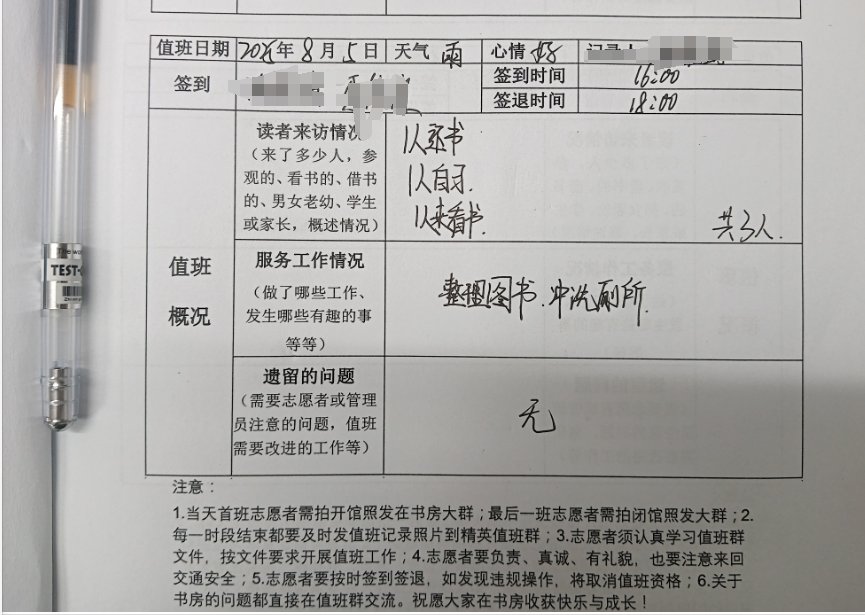 值班日期 2025年 8月 5日 天气 雨 心情 好 记录人
签到 签到时间 16:00
签退时间 18:00
值班概况
读者来访情况
(来了多少人,参
观的、看书的、借书
的、男女老幼、学生
或家长,概述情况)
1人还书
1人自习.
1人来看书.
共3人.
服务工作情况
(做了哪些工作、
发生哪些有趣的事
等等)
整理图书、冲洗厕所.
遗留的问题
(需要志愿者或管理
员注意的问题,值班
需要改进的工作等)
无
注意:
1.当天首班志愿者需拍开馆照发在书房大群;最后一班志愿者需拍闭馆照发大群;2.
每一时段结束都要及时发值班记录照片到精英值班群;3.志愿者须认真学习值班群
文件,按文件要求开展值班工作;4.志愿者要负责、真诚、有礼貌,也要注意来回
交通安全;5.志愿者要按时签到签退,如发现违规操作,将取消值班资格;6.关于
书房的问题都直接在值班群交流。祝愿大家在书房收获快乐与成长!
TEST-